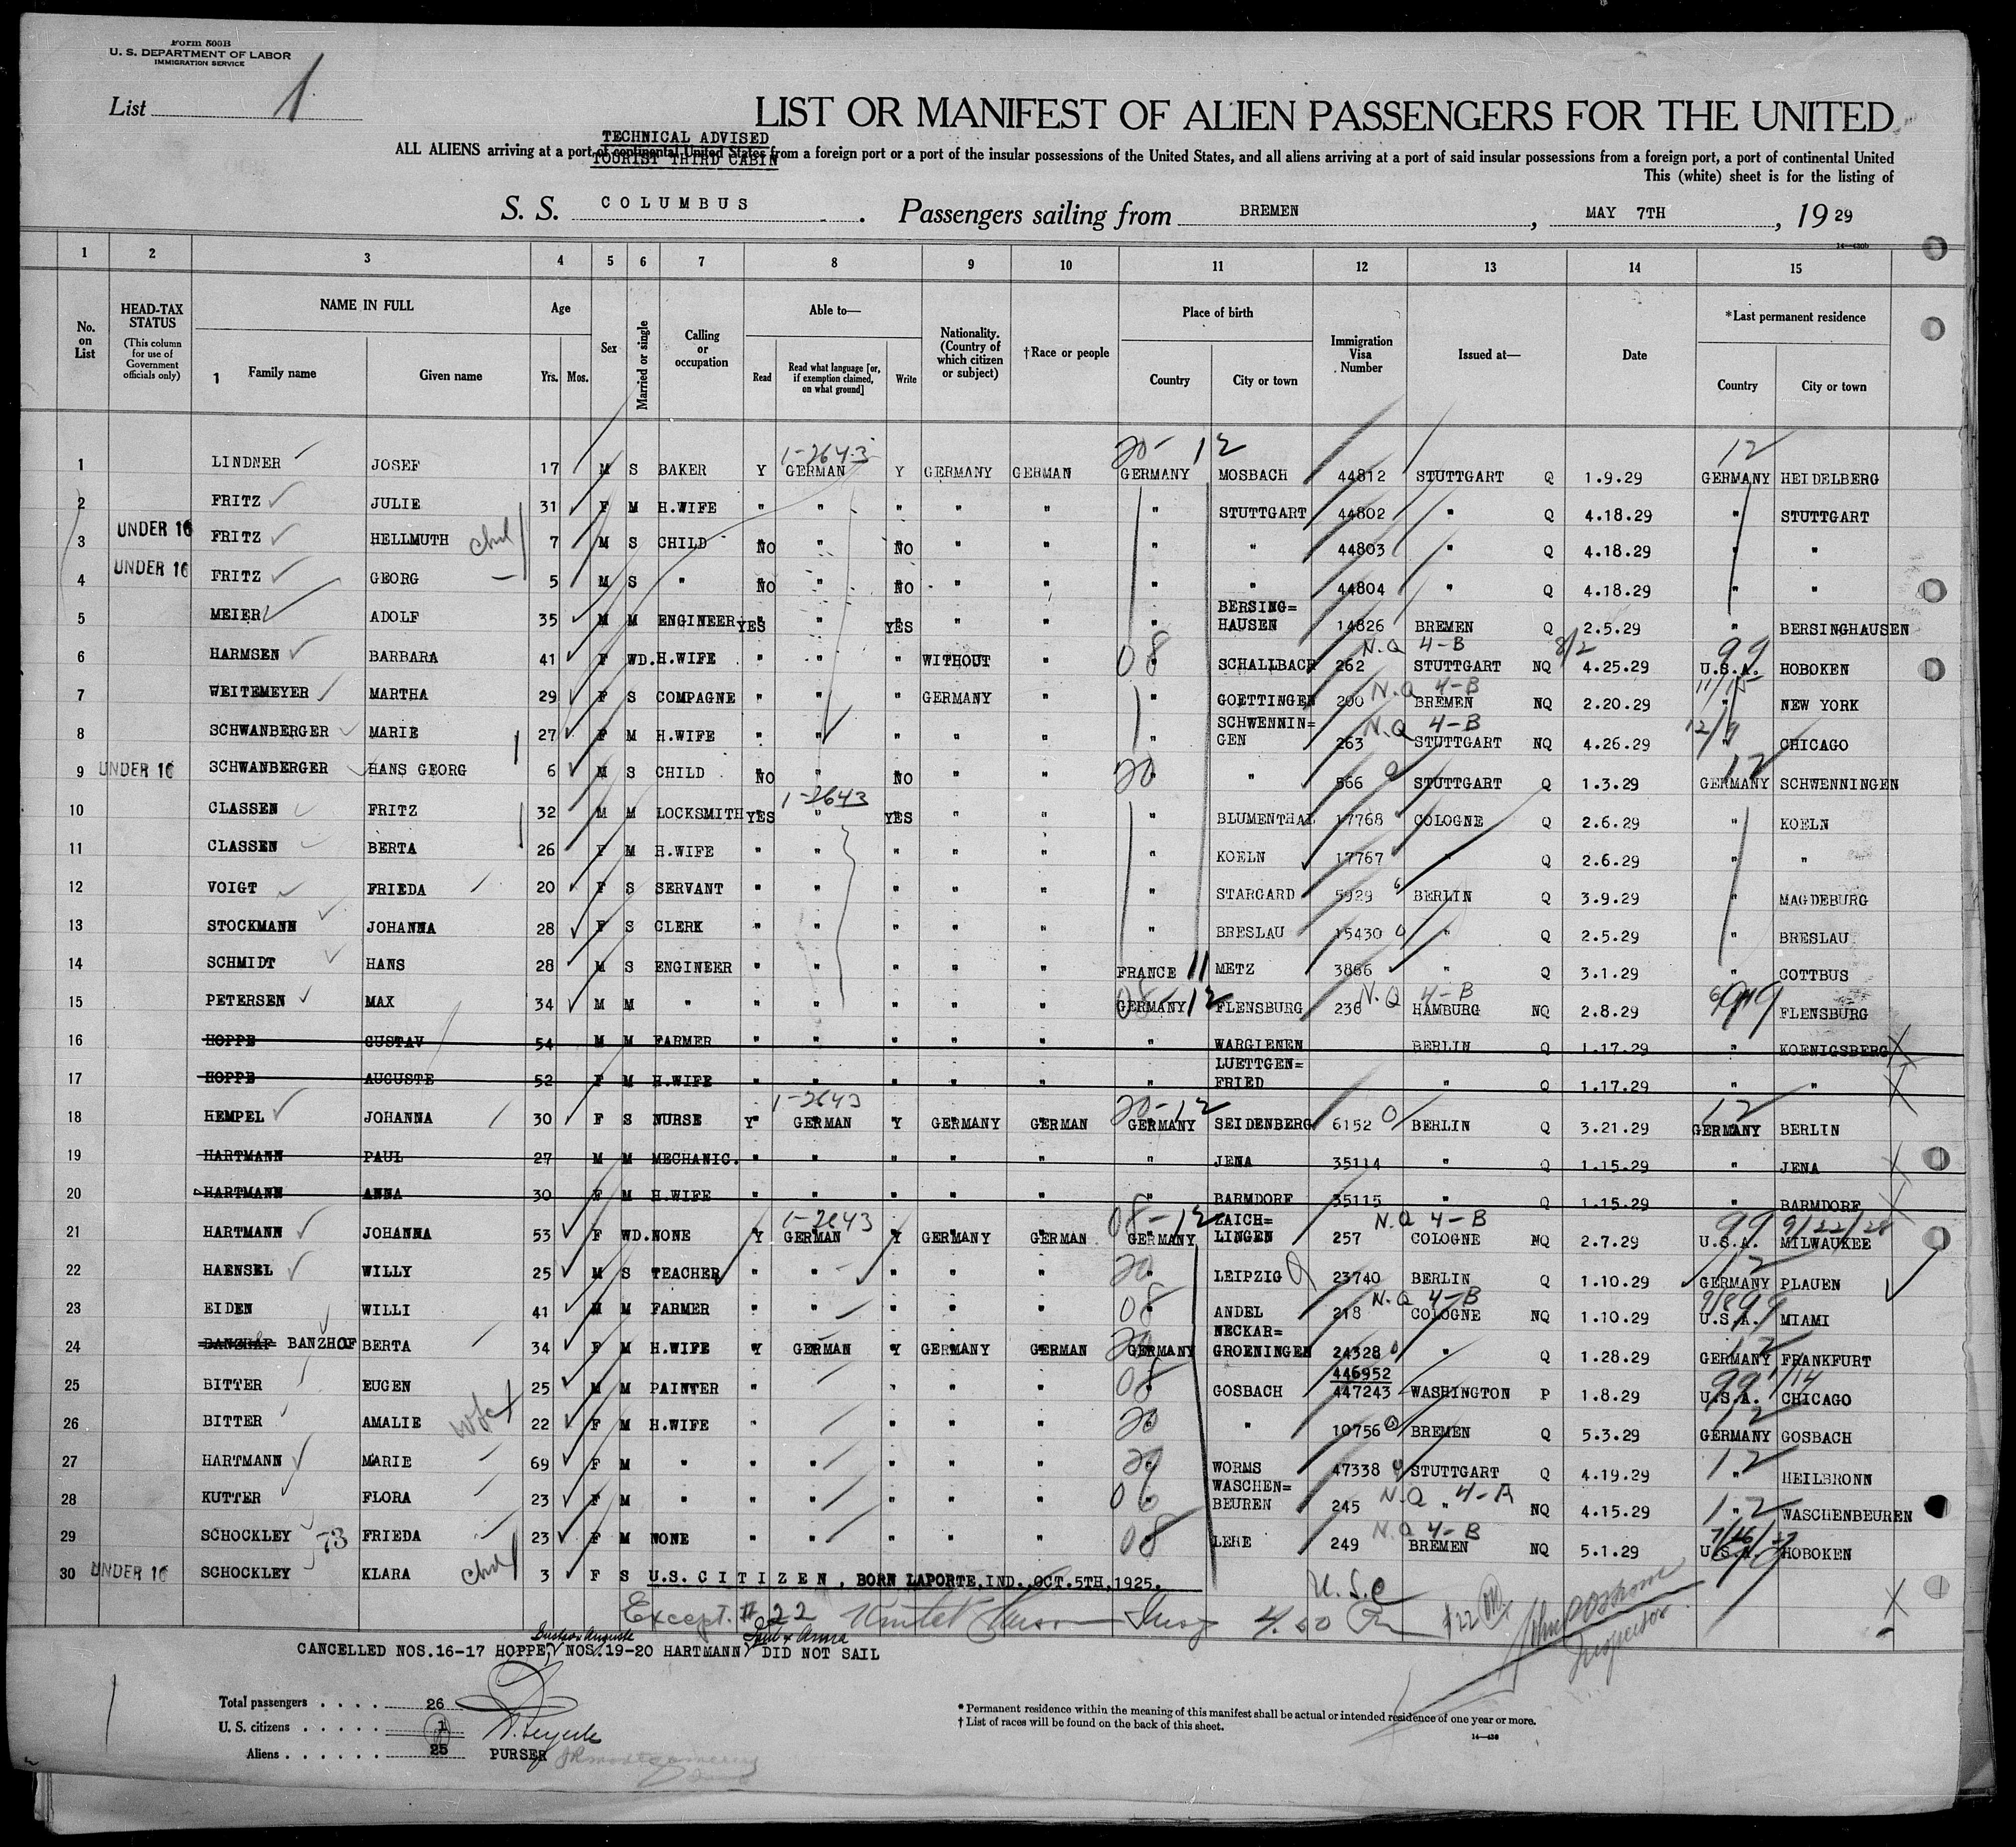 Form 500B
U. S. DEPARTMENT OF LABOR
IMMIGRATION SERVICE
List 1
LIST OR MANIFEST OF ALIEN PASSENGERS FOR THE UNITED
TECHNICAL ADVISED
ALL ALIENS arriving at a port of continental United States from a foreign port or a port of the insular possessions of the United States, and all aliens arriving at a port of said insular possessions from a foreign port, a port of continental United
TOURIST THIRD CABIN
This (white) sheet is for the listing of
S. S. COLUMBUS. Passengers sailing from BREMEN, MAY 7TH, 19 29
14—430b
1 2 3 4 5 6 7 8 9 10 11 12 13 14 15
No. on List
HEAD-TAX STATUS (This column for use of Government officials only)
NAME IN FULL
1 Family name Given name
Age Yrs. Mos.
Sex
Married or single
Calling or occupation
Able to— Read Read what language [or, if exemption claimed, on what ground] Write
Nationality. (Country of which citizen or subject)
†Race or people
Place of birth Country City or town
Immigration Visa Number
Issued at—
Date
*Last permanent residence Country City or town
1-2643 20-12 12
1 LINDNER JOSEF 17 M S BAKER Y GERMAN Y GERMANY GERMAN GERMANY MOSBACH 44812 STUTTGART Q 1.9.29 GERMANY HEIDELBERG
2 FRITZ JULIE 31 F M H.WIFE " " " " " " STUTTGART 44802 " Q 4.18.29 " STUTTGART
3 UNDER 16 FRITZ HELLMUTH chd 7 M S CHILD NO " NO " " " " 44803 " Q 4.18.29 " "
4 UNDER 16 FRITZ GEORG 5 M S " NO " NO " " " " 44804 " Q 4.18.29 " "
5 MEIER ADOLF 35 M M ENGINEER YES " YES " " " BERSING= HAUSEN 14826 BREMEN Q 2.5.29 " BERSINGHAUSEN
6 HARMSEN BARBARA 41 F WD. H.WIFE " " " WITHOUT " 08 " SCHALLBACH 262 N.Q 4-B STUTTGART NQ 8/2 4.25.29 99 U.S.A. HOBOKEN
7 WEITEMEYER MARTHA 29 F S COMPAGNE " " " GERMANY " " GOETTINGEN 200 N.Q 4-B BREMEN NQ 2.20.29 11/15 " NEW YORK
8 SCHWANBERGER MARIE 27 F M H.WIFE " " " " " " SCHWENNIN= GEN 263 N.Q 4-B STUTTGART NQ 4.26.29 12/9 " CHICAGO
9 UNDER 16 SCHWANBERGER HANS GEORG 6 M S CHILD NO " NO " " 20 " " 566 STUTTGART Q 1.3.29 12 GERMANY SCHWENNINGEN
10 CLASSEN FRITZ 32 M M LOCKSMITH YES 1-2643 " YES " " " BLUMENTHAL 17768 COLOGNE Q 2.6.29 " KOELN
11 CLASSEN BERTA 26 F M H.WIFE " " " " " " KOELN 17767 " Q 2.6.29 " "
12 VOIGT FRIEDA 20 F S SERVANT " " " " " " STARGARD 5929 BERLIN Q 3.9.29 " MAGDEBURG
13 STOCKMANN JOHANNA 28 F S CLERK " " " " " " BRESLAU 15430 " Q 2.5.29 " BRESLAU
14 SCHMIDT HANS 28 M S ENGINEER " " " " " FRANCE 11 METZ 3866 " Q 3.1.29 " COTTBUS
15 PETERSEN MAX 34 M M " " " " " " 08-12 GERMANY FLENSBURG 236 N.Q 4-B HAMBURG NQ 2.8.29 " FLENSBURG
16 HOPPE GUSTAV 54 M M FARMER " " " " " " WARGIENEN BERLIN Q 1.17.29 " KOENIGSBERG X
17 HOPPE AUGUSTE 52 F M H.WIFE " " " " " " LUETTGEN= FRIED " Q 1.17.29 " " X
18 HEMPEL JOHANNA 30 F S NURSE Y 1-2643 GERMAN Y GERMANY GERMAN 20-12 GERMANY SEIDENBERG 6152 BERLIN Q 3.21.29 12 GERMANY BERLIN
19 HARTMANN PAUL 27 M M MECHANIC. " " " " " " JENA 35114 " Q 1.15.29 " JENA X
20 HARTMANN ANNA 30 F M H.WIFE " " " " " " BARMDORF 35115 " Q 1.15.29 " BARMDORF X
21 HARTMANN JOHANNA 53 F WD. NONE Y 1-2643 GERMAN Y GERMANY GERMAN 08-12 GERMANY ZAICH= LINGEN 257 N.Q 4-B COLOGNE NQ 2.7.29 99 9/22/28 U.S.A. MILWAUKEE
22 HAENSEL WILLY 25 M S TEACHER " " " " " 20 " LEIPZIG 23740 BERLIN Q 1.10.29 12 GERMANY PLAUEN
23 EIDEN WILLI 41 M M FARMER " " " " " 08 " ANDEL 218 N.Q 4-B COLOGNE NQ 1.10.29 U.S.A. MIAMI
24 BANZHAF BANZHOF BERTA 34 F M H.WIFE Y GERMAN Y GERMANY GERMAN 20 GERMANY NECKAR= GROENINGEN 24328 " Q 1.28.29 12 GERMANY FRANKFURT
25 BITTER EUGEN 25 M M PAINTER " " " " " 08 " GOSBACH 446952 447243 WASHINGTON P 1.8.29 99 1/14 U.S.A. CHICAGO
26 BITTER AMALIE wfe 22 F M H.WIFE " " " " " 20 " " 10756 BREMEN Q 5.3.29 12 GERMANY GOSBACH
27 HARTMANN MARIE 69 F M " " " " " " 20 " WORMS 47338 STUTTGART Q 4.19.29 12 " HEILBRONN
28 KUTTER FLORA 23 F M " " " " " " 06 " WASCHEN= BEUREN 245 N.Q 4-A " NQ 4.15.29 12 " WASCHENBEUREN
29 SCHOCKLEY 73 FRIEDA 23 F M NONE " " " " " 08 " LEHE 249 N.Q 4-B BREMEN NQ 5.1.29 U.S.A. HOBOKEN
30 UNDER 16 SCHOCKLEY KLARA chd 3 F S U.S. CITIZEN, BORN LAPORTE, IND. OCT. 5TH, 1925. U.S.C
Except. # 22 4.00 #22 X
Gustav Auguste Paul & Anna
CANCELLED NOS.16-17 HOPPE, NOS.19-20 HARTMANN DID NOT SAIL
Inspector
Total passengers . . . . 26
U. S. citizens . . . . . 1
Aliens . . . . . . 25
PURSER
* Permanent residence within the meaning of this manifest shall be actual or intended residence of one year or more.
† List of races will be found on the back of this sheet.
14—430